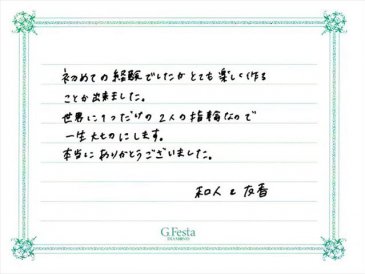 初めての経験でしたがとても楽しく作る
ことが出来ました。
世界に1つだけの2人の指輪なので
一生大切にします。
本当にありがとうございました。
和人 & 友香
G.Festa